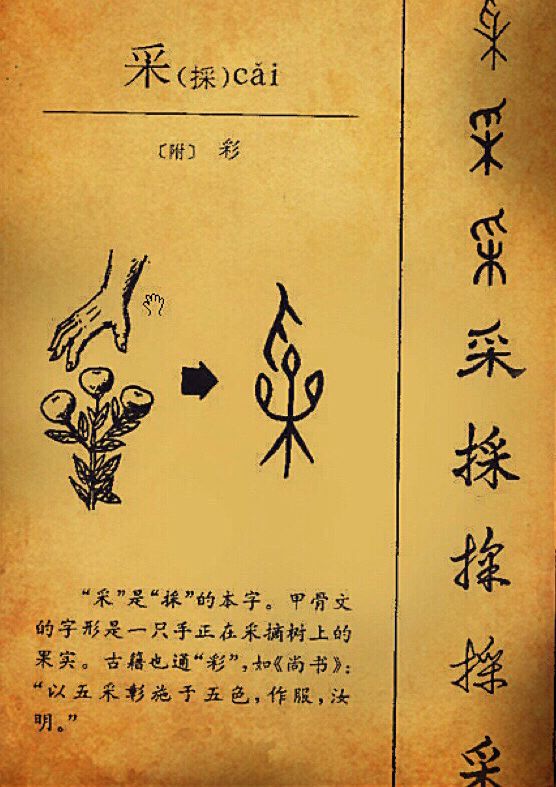 采(採)cǎi
〔附〕 彩
“采”是“採”的本字。甲骨文
的字形是一只手正在采摘树上的
果实。古籍也通“彩”，如《尚书》：
“以五采彰施于五色，作服，汝
明。”
采
采
采
采
採
採
採
采